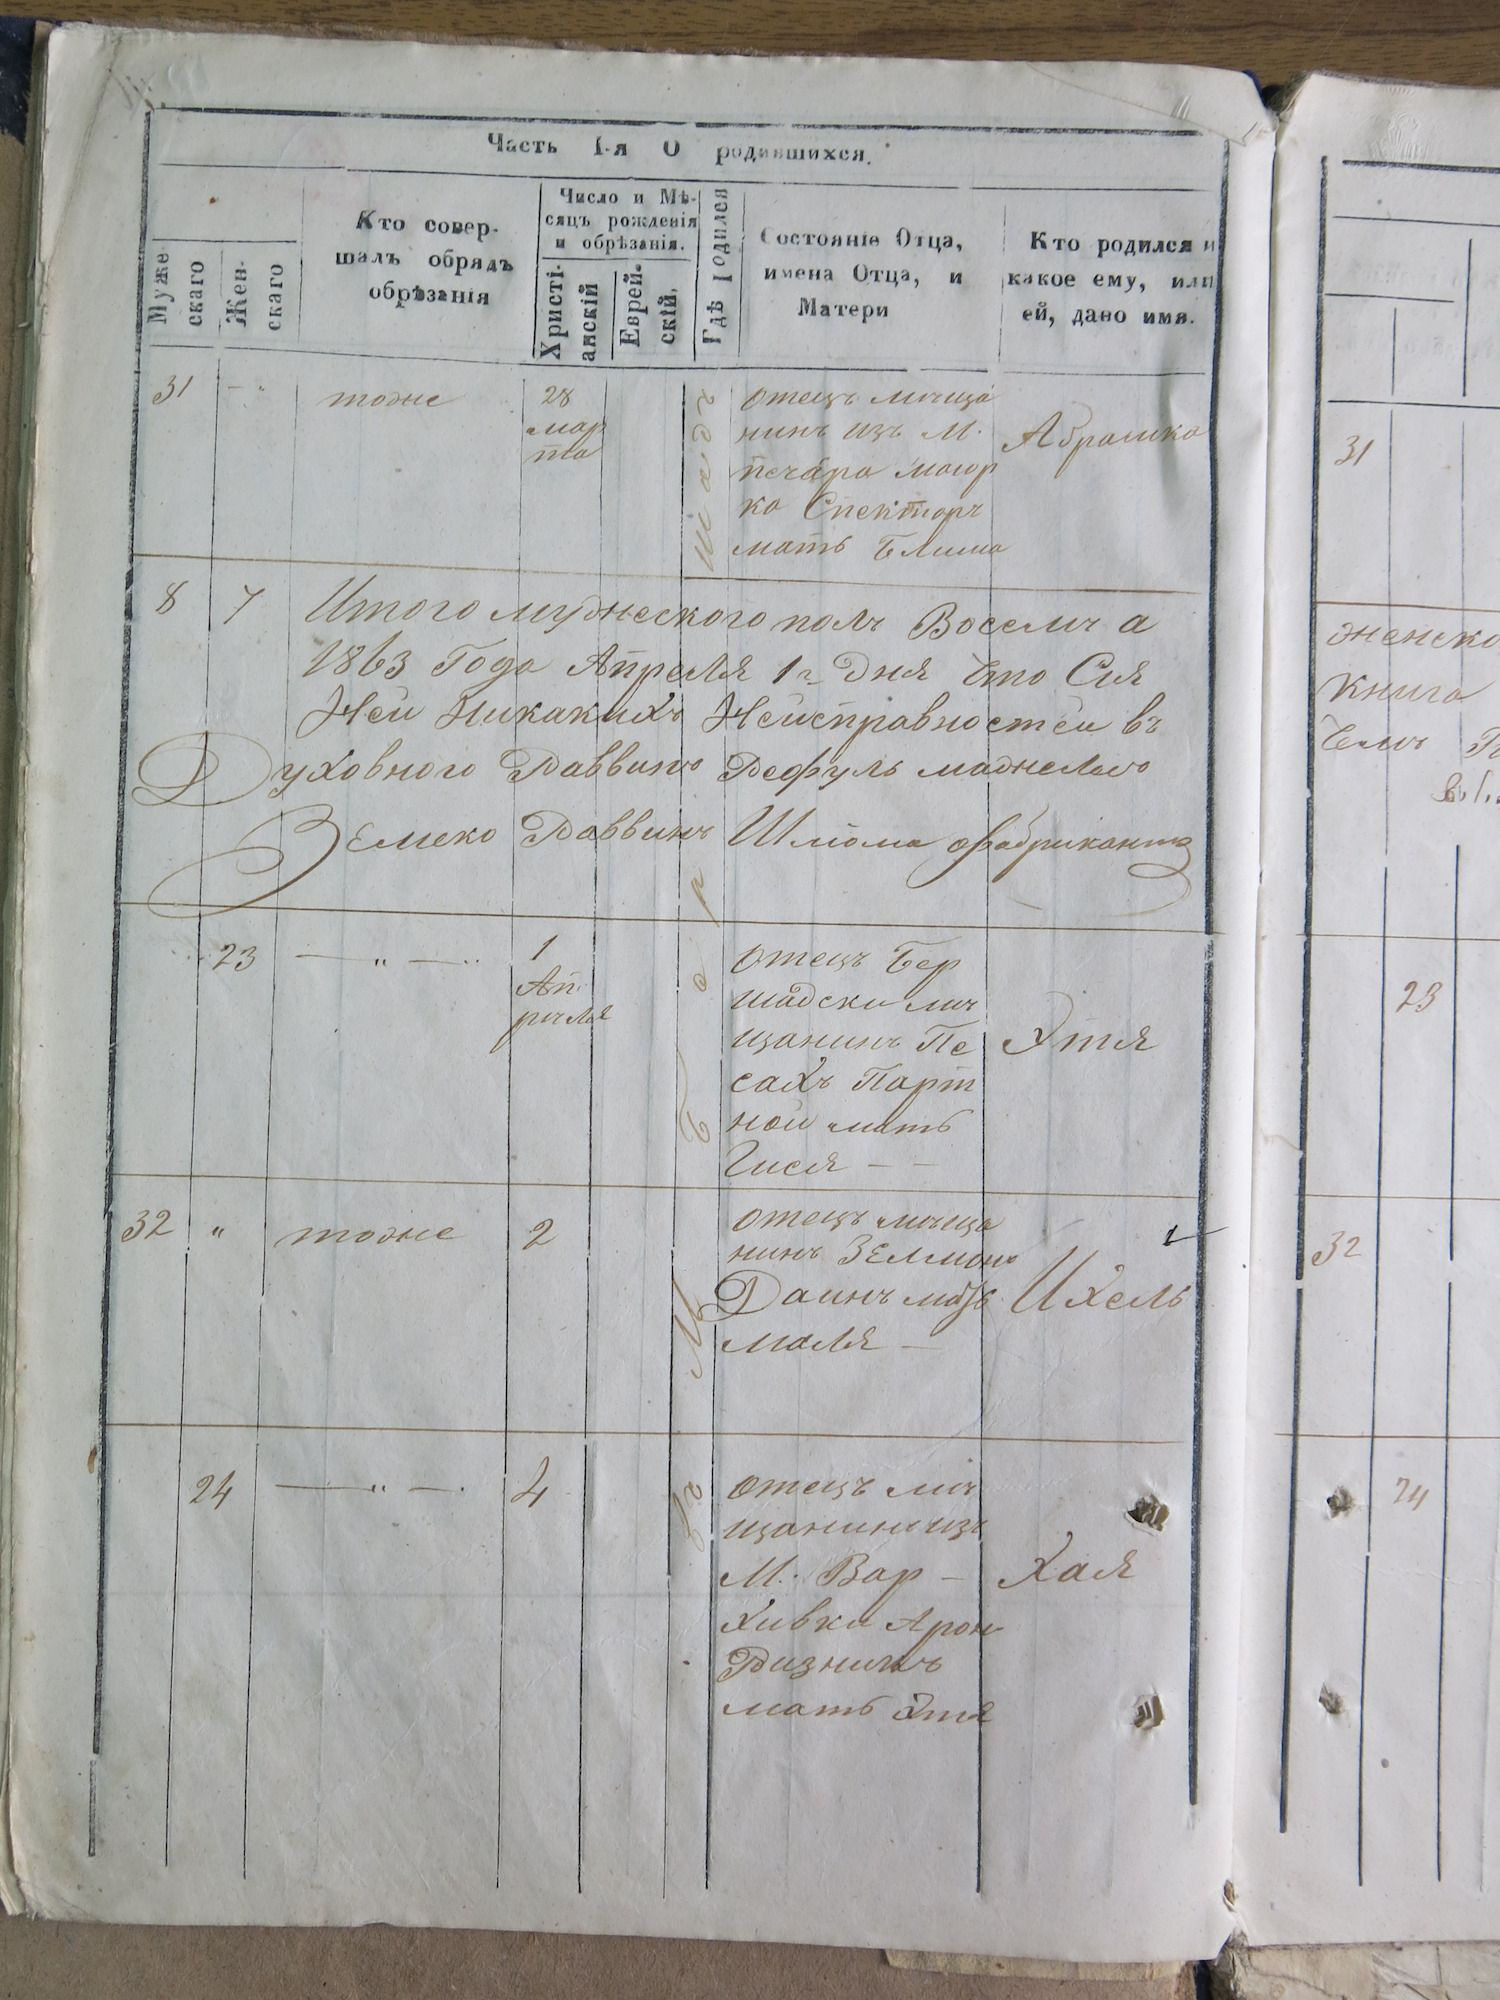 Часть I-я О родившихся.
Муже
скаго
Жен-
скаго
Кто совер-
шалъ обрядъ
обрѣзанія
Число и Мѣ-
сяцъ рожденія
и обрѣзанія.
Христі-
анскій
Еврей-
скій.
Гдѣ родился
Состояніе Отца,
имена Отца, и
Матери
Кто родился и
какое ему, или
ей, дано имя.
31
тоже
28
мар
та
отецъ мѣща
нинъ изъ М.
Печара
ко Спекторъ
мать Блима
Абрамко
8 7 Итого мужеского полъ Восемъ а
1863 Года Апреля 1го Дня Что Сія
Ней Никакихъ Неисправностей въ
Духовного Раввинъ Рефуль
Раввинъ Шлiома Фабрикантъ
23
1
Ап
рѣля
отецъ Бер
шадски мѣ
щанинъ Пе
сахъ Порт
ной мать
Гися
Этя
32 " тоже 2
отецъ мѣща
нинъ Зельмонъ
Даинъ мать
маля
Ихель
24
4
отецъ мѣ
щанинъ изъ
М. Вар
хивки Арон
Ризникъ
мать Этя
Хая
Въ М. Бершадъ
31
женско
книга
23
32
24